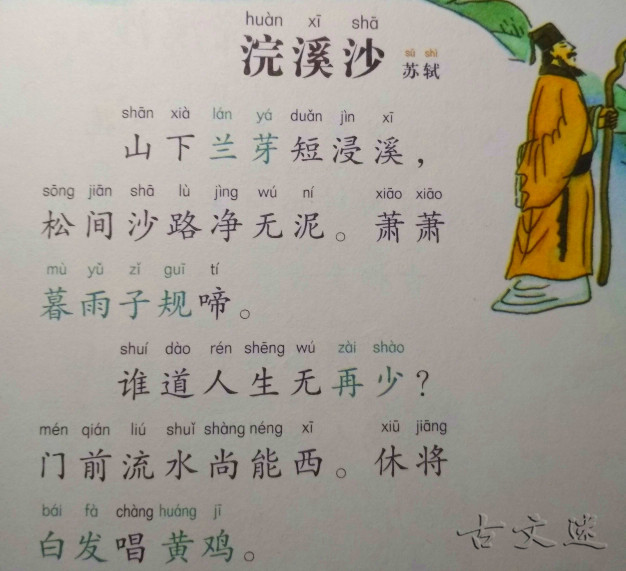 huàn xī shā
浣溪沙
sū shì
苏轼
shān xià lán yá duǎn jìn xī
山下兰芽短浸溪，
sōng jiān shā lù jìng wú ní xiāo xiāo
松间沙路净无泥。萧萧
mù yǔ zǐ guī tí
暮雨子规啼。
shuí dào rén shēng wú zài shào
谁道人生无再少？
mén qián liú shuǐ shàng néng xī xiū jiāng
门前流水尚能西。休将
bái fà chàng huáng jī
白发唱黄鸡。
古文迷